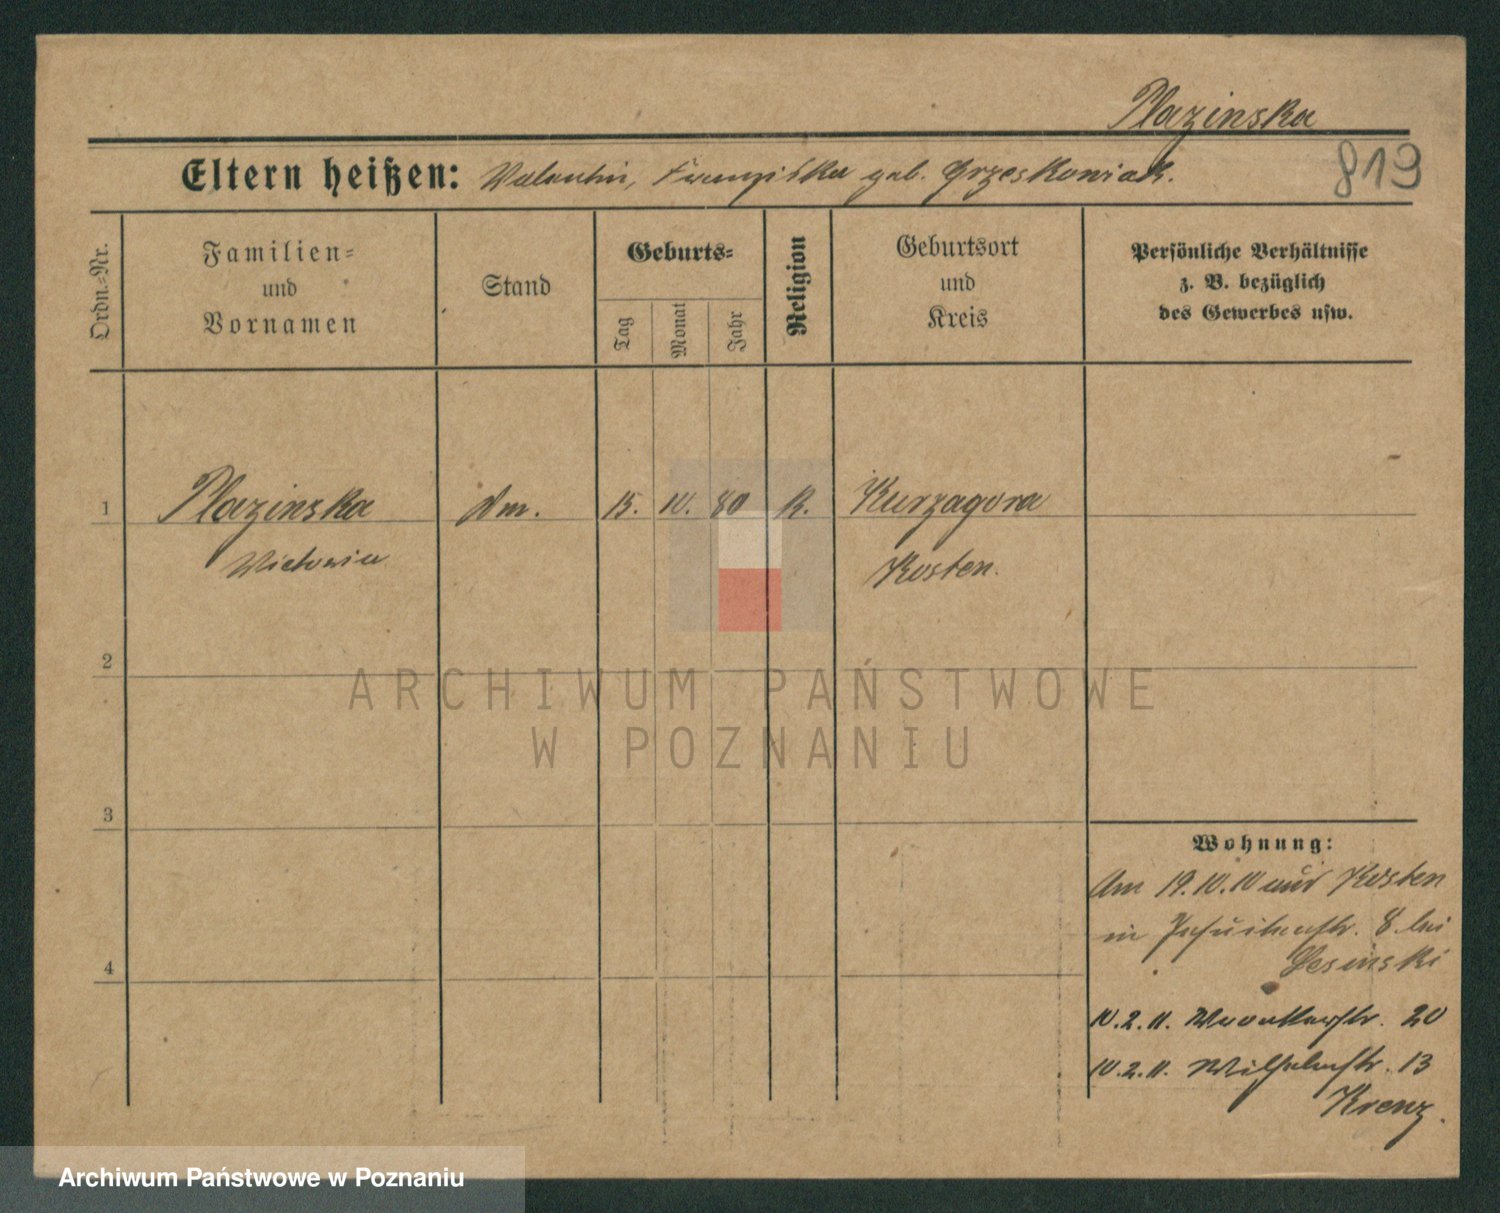 Plazinska
Eltern heißen: Valentin, Franziska geb. Grzeskowiak.
819
Ordn.-Nr.
Familien- und Vornamen
Stand
Geburts-
Tag
Monat
Jahr
Religion
Geburtsort und Kreis
Persönliche Verhältnisse
z. B. bezüglich
des Gewerbes usw.
1 Plazinska 15. 10. 80 K. Kurzagora
Victoria Kosten.
2
ARCHIWUM PAŃSTWOWE
W POZNANIU
3
Wohnung:
Am 19.10.10 aus Kosten
in Jesuitenstr. 8 bei
Lesinski
4
10.2.11. 20
10.2.11. Wilhelmstr. 13
Krenz.
Archiwum Państwowe w Poznaniu